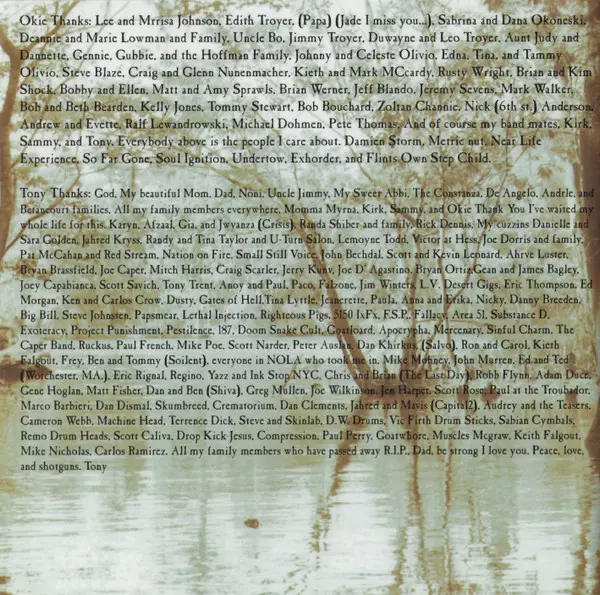 Okie Thanks: Lee and Mrrisa Johnson, Edith Troyer, (Papa) (Jade I miss you...), Sabrina and Dana Okoneski,
Deannie and Marie Lowman and Family, Uncle Bo, Jimmy Troyer, Duwayne and Leo Troyer, Aunt Judy and
Dannette, Gennie, Gubbie, and the Hoffman Family, Johnny and Celeste Olivio, Edna, Tina, and Tammy
Olivio, Steve Blaze, Craig and Glenn Nunenmacher, Kieth and Mark MCcardy, Rusty Wright, Brian and Kim
Shock, Bobby and Ellen, Matt and Amy Sprawls, Brian Werner, Jeff Blando, Jeremy Sevens, Mark Walker,
Bob and Beth Bearden, Kelly Jones, Tommy Stewart, Bob Bouchard, Zoltan Channie, Nick (6th st.) Anderson,
Andrew and Evette, Ralf Lewandrowski, Michael Dohmen, Pete Thomas, And of course my band mates, Kirk,
Sammy, and Tony. Everybody above is the people I care about. Damien Storm, Metric nut, Near Life
Experience, So Far Gone, Soul Ignition, Undertow, Exhorder, and Flints Own Step Child.
Tony Thanks: God, My beautiful Mom, Dad, Noni, Uncle Jimmy, My Sweet Abbi, The Constanza, De Angelo, Andrle, and
Betancourt families, All my family members everywhere, Momma Myrna, Kirk, Sammy, and Okie Thank You I've waited my
whole life for this. Karyn, Afzaal, Gia, and Jwyanza (Crisis), Randa Shiber and family, Rick Dennis, My cuzzins Danielle and
Sara Golden, Jahred Kryss, Randy and Tina Taylor and U-Turn Salon, Lemoyne Todd, Victor at Hess, Joe Dorris and family,
Pat McCahan and Red Stream, Nation on Fire, Small Still Voice, John Bechdal, Scott and Kevin Leonard, Ahrve Luster,
Bryan Brassfield, Joe Caper, Mitch Harris, Craig Scarler, Jerry Kunv, Joe D' Agastino, Bryan Ortiz, Gean and James Bagley,
Joey Capabianca, Scott Savich, Tony Trent, Anoy and Paul, Paco, Falzone, Jim Winters, L.V. Desert Gigs, Eric Thompson, Ed
Morgan, Ken and Carlos Crow, Dusty, Gates of Hell, Tina Lyttle, Jeanrette, Paula, Anna and Erika, Nicky, Danny Breeden,
Big Bill, Steve Johnsten, Papsmear, Lethal Injection, Righteous Pigs, 5150 IxFx, F.S.P., Fallacy, Area 51, Substance D,
Exoteracy, Project Punishment, Pestilence, 187, Doom Snake Cult, Goatloard, Apocrypha, Mercenary, Sinful Charm, The
Caper Band, Ruckus, Paul French, Mike Poe, Scott Narder, Peter Auslan, Dan Khirkus, (Salvo), Ron and Carol, Kieth
Falgout, Frey, Ben and Tommy (Soilent), everyone in NOLA who took me in, Mike Mobney, John Murren, Ed and Ted
(Worchester, MA.), Eric Rignal, Regino, Yazz and Ink Stop NYC, Chris and Brian (The Last Day), Robb Flynn, Adam Duce,
Gene Hoglan, Matt Fisher, Dan and Ben (Shiva), Greg Mullen, Joe Wilkinson, Jen Harper, Scott Rose, Paul at the Troubador,
Marco Barbieri, Dan Dismal, Skumbreed, Crematorium, Dan Clements, Jahred and Mavis (Capital2), Audrey and the Teasers,
Cameron Webb, Machine Head, Terrence Dick, Steve and Skinlab, D.W. Drums, Vic Firth Drum Sticks, Sabian Cymbals,
Remo Drum Heads, Scott Caliva, Drop Kick Jesus, Compression, Paul Perry, Goatwhore, Muscles Mcgraw, Keith Falgout,
Mike Nicholas, Carlos Ramirez. All my family members who have passed away R.I.P., Dad, be strong I love you, Peace, love,
and shotguns. Tony